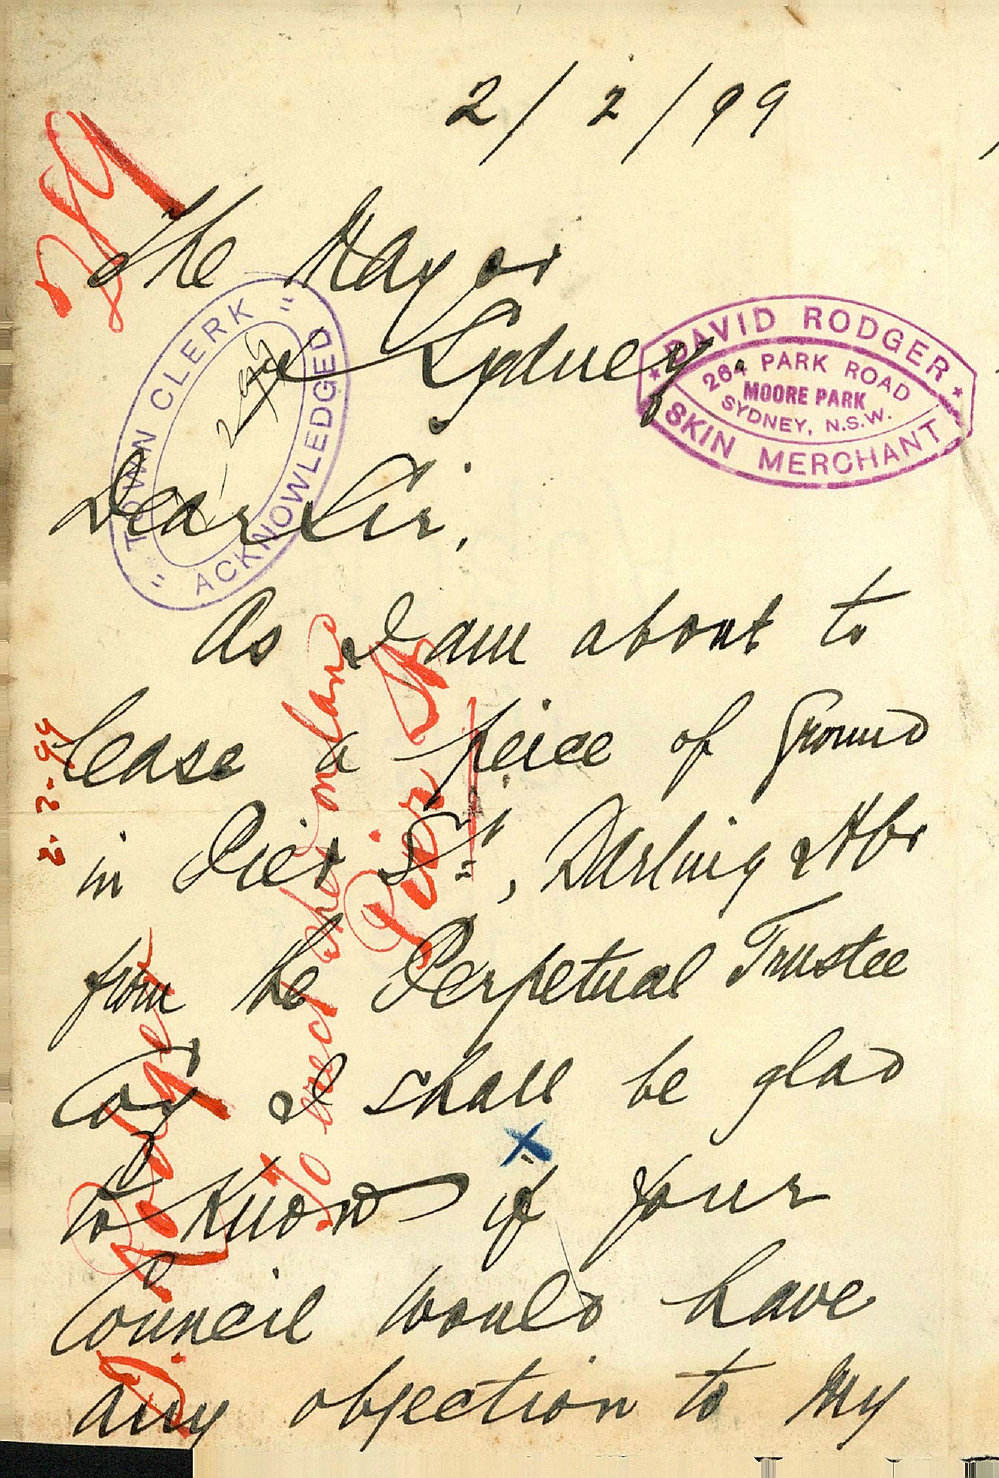 2/2/99
289
The Mayor
of Sydney
DAVID RODGER
264 PARK ROAD
MOORE PARK
SYDNEY, N.S.W.
SKIN MERCHANT
"TOWN CLERK"
ACKNOWLEDGED
Dear Sir,
As I am about to
lease a peice of Ground
in Pier St, Darling Hbr
from the Perpetual Trustee
Coy I shall be glad
to Know if your
Council would have
any objection to My
2.2.99
D Rodger
To erect shed on land
Pier St